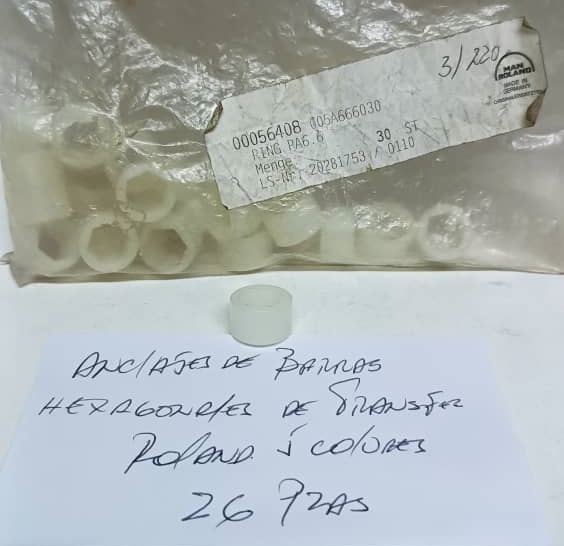 3/220
MAN
ROLAND
MADE IN
GERMANY
00056408 105A666030
RING PA6.6
Menge 30 ST
LS-Nr. 20281753 / 0110
ANCLAJES DE BARRAS
HEXAGONALES DE TRANSFER
ROLAND 5 COLORES
26 PZAS